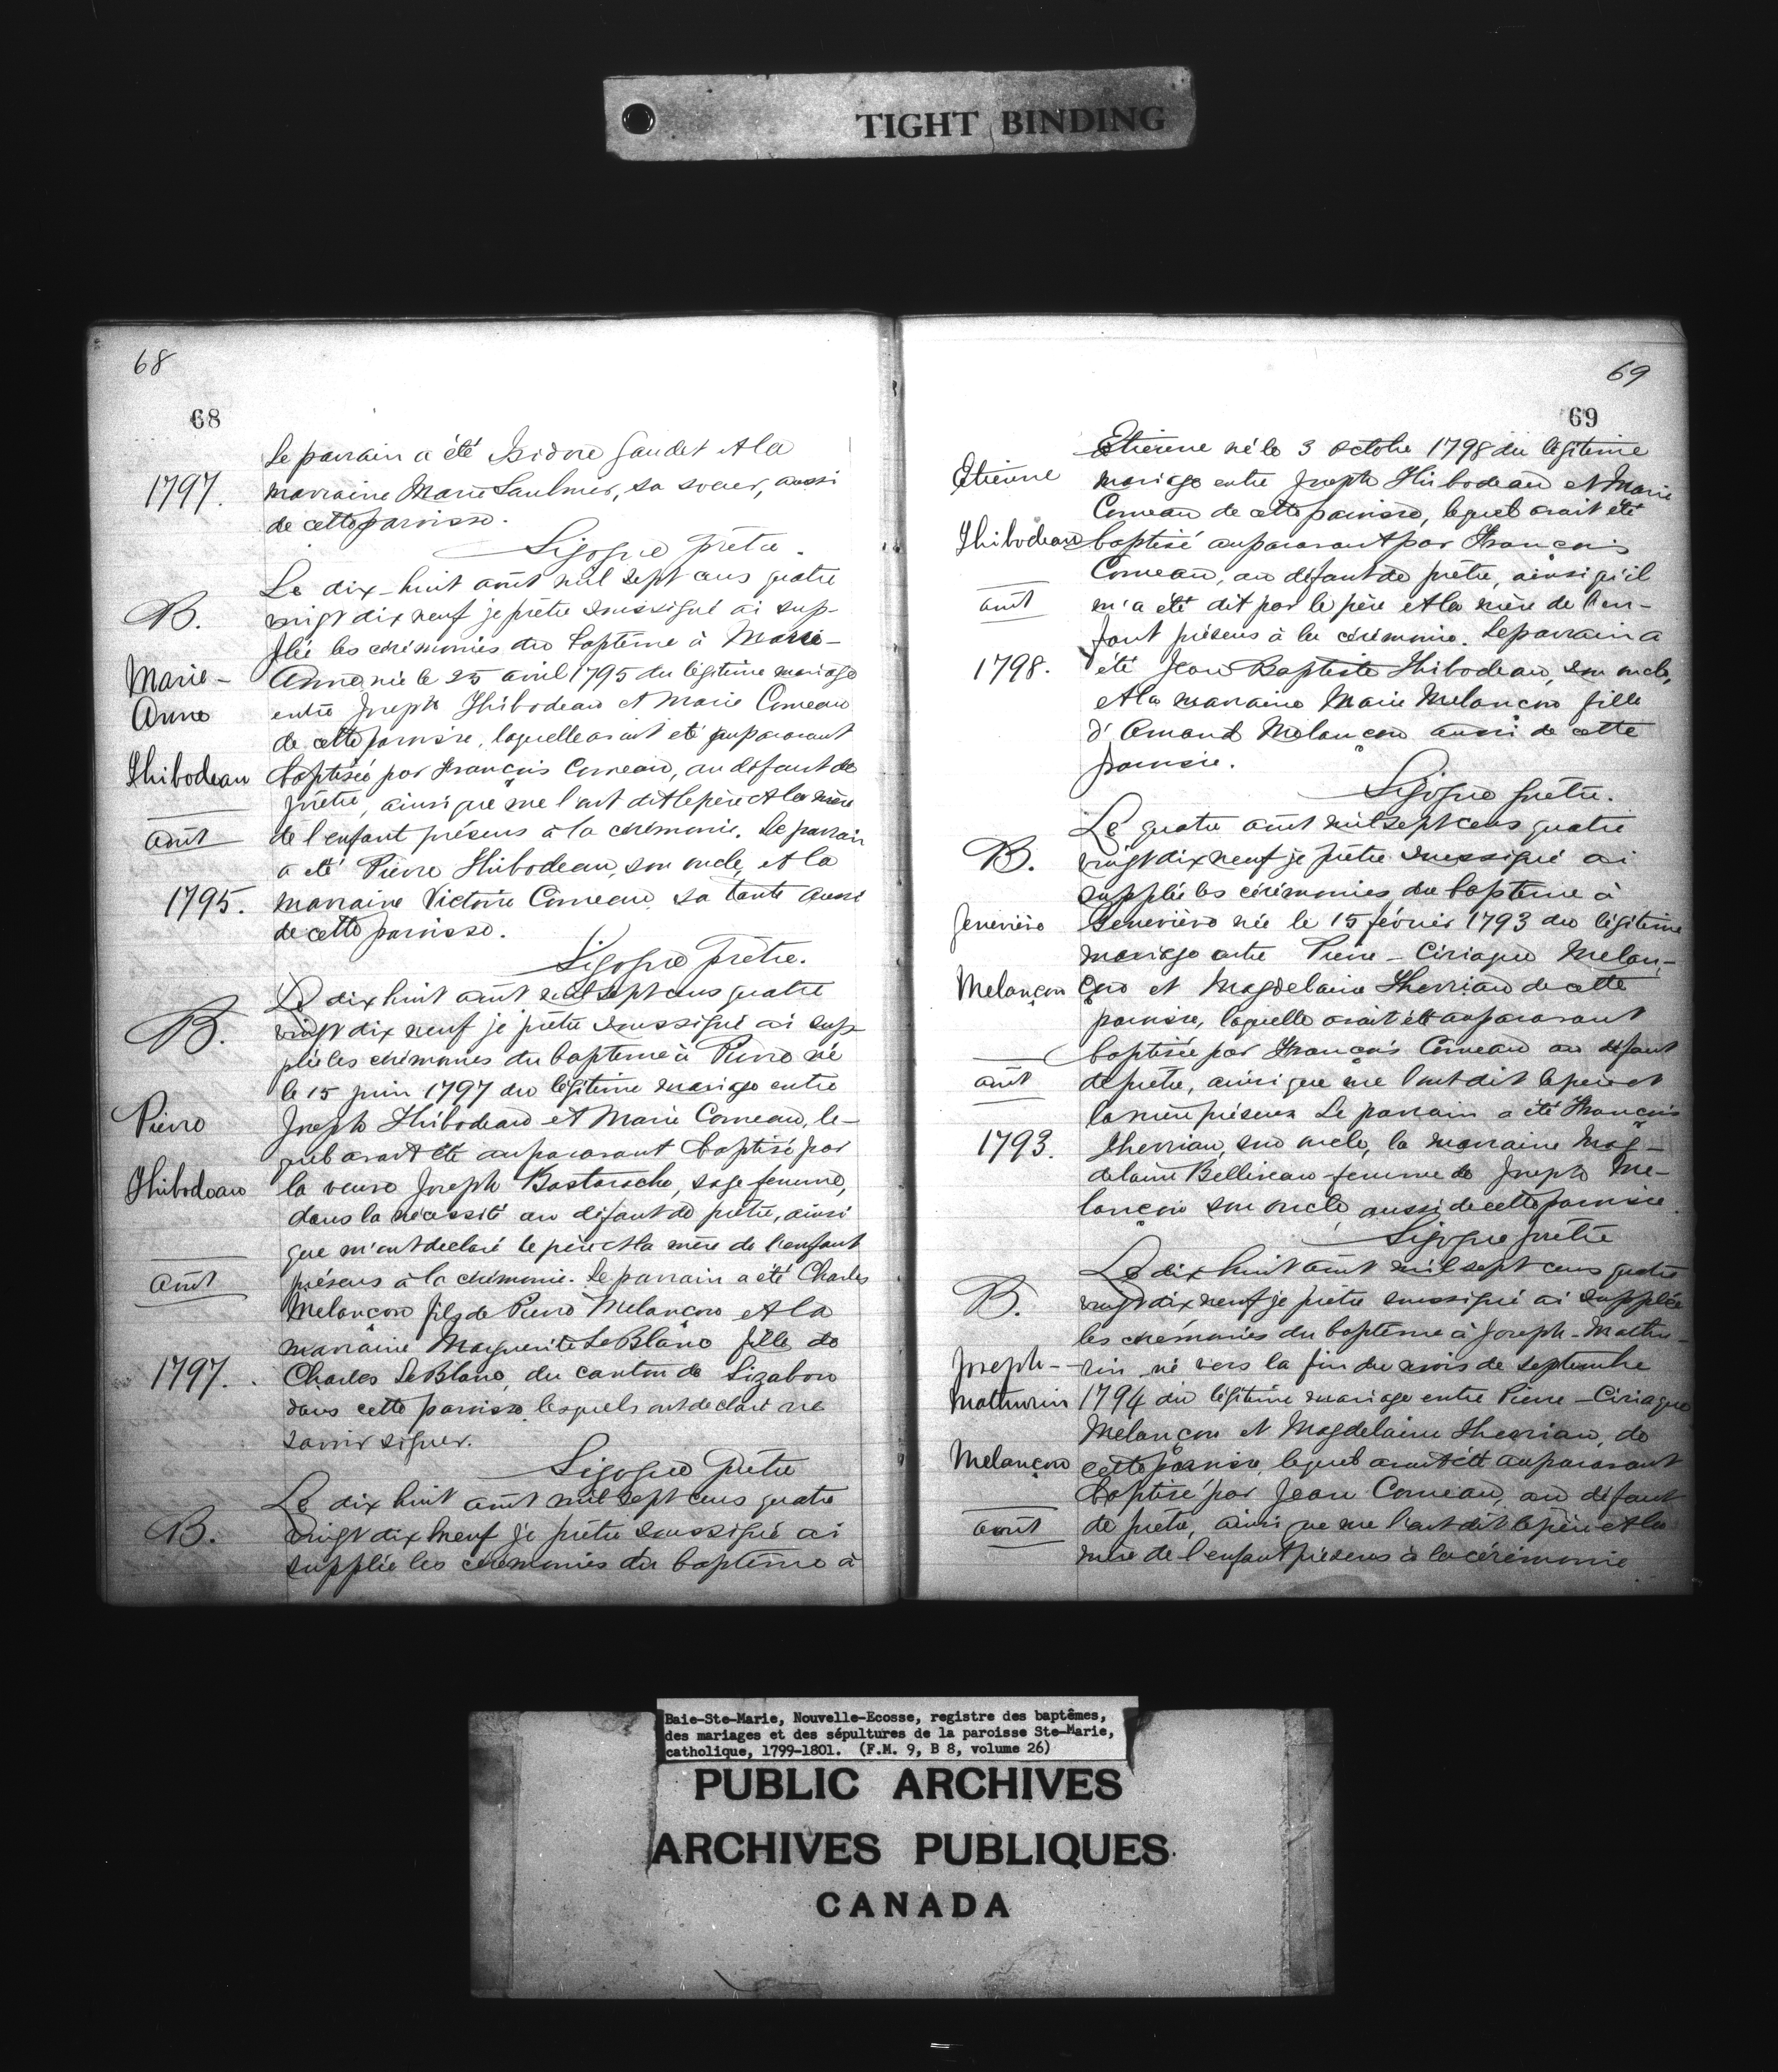 TIGHT BINDING
68
68
Le parrain a été Isidore Gaudet et la
1797. marraine Marie Saulnier, sa soeur, aussi
de cette paroisse.
Sigogne prêtre.
Le dix-huit août mil sept cens quatre
B. vingt dix neuf je prêtre soussigné ai sup-
plié les cérémonies du baptême à Marie-
Marie- Anne née le 25 avril 1795 du légitime mariage
Anne entre Joseph Thibodeau et Marie Comeau
de cette paroisse, laquelle avait été auparavant
Thibodeau baptisée par François Comeau, au défaut de
prêtre, ainsi que me l'ont dit le père et la mère
août de l'enfant présens à la cérémonie. Le parrain
a été Pierre Thibodeau, son oncle, et la
1795. marraine Victoire Comeau, sa tante aussi
de cette paroisse.
Sigogne prêtre.
Le dix huit août mil sept cens quatre
B. vingt dix neuf je prêtre soussigné ai sup-
pléé les cérémonies du baptême à Pierre né
le 15 juin 1797 du légitime mariage entre
Pierre Joseph Thibodeau et Marie Comeau, le-
quel avait été auparavant baptisé par
Thibodeau la veuve Joseph Bastarache, sage femme,
dans la nécessité au défaut de prêtre, ainsi
que m'ont déclaré le père et la mère de l'enfant
Août présens à la cérémonie. Le parrain a été Charles
Melançon fils de Pierre Melançon et la
marraine Marguerite LeBlanc fille de
1797. Charles LeBlanc, du canton de Lizabou
dans cette paroisse lesquels ont declaré ne
savoir signer.
Sigogne prêtre
Le dix huit août mil sept cens quatre
B. vingt dix neuf je prêtre soussigné ai
supplée les cérémonies du baptême à
69
69
Etienne né le 3 octobre 1798 du légitime
Etienne mariage entre Joseph Thibodeau et Marie
Comeau de cette paroisse, lequel avait été
Thibodeau baptisé auparavant par François
Comeau, au défaut de prêtre, ainsi qu'il
août m'a été dit par le père et la mère de l'en-
fant présens à la cérémonie. Le parrain a
1798. été Jean Baptiste Thibodeau, son oncle,
et la marraine Marie Melançon fille
d'Amand Melançon aussi de cette
paroisse.
Sigogne prêtre.
Le quatre août mil sept cens quatre
B. vingt dix neuf je prêtre soussigné ai
supplée les cérémonies du baptême à
Geneviève Geneviève née le 15 février 1793 du légitime
mariage entre Pierre-Ciriaque Melan-
Melançon çon et Magdelaine Therriau de cette
paroisse, laquelle avait été auparavant
baptisée par François Comeau au défaut
août de prêtre, ainsi que me l'ont dit le père et
la mère présens. Le parrain a été François
1793. Therriau, son oncle, la marraine Mag-
delaine Belliveau femme de Joseph Me-
lançon son oncle aussi de cette paroisse.
Sigogne prêtre
Le dix huit août mil sept cens quatre
B. vingt dix neuf je prêtre soussigné ai supplée
les cérémonies du baptême à Joseph-Mathu-
Joseph- rin né vers la fin du mois de Septembre
Mathurin 1794 du légitime mariage entre Pierre-Ciriaque
Melançon et Magdelaine Therriau, de
Melançon cette paroisse, lequel avait été auparavant
baptisé par Jean Comeau, au défaut
août de prêtre, ainsi que me l'ont dit le père et la
mère de l'enfant présens à la cérémonie
Baie-Ste-Marie, Nouvelle-Ecosse, registre des baptêmes,
des mariages et des sépultures de la paroisse Ste-Marie,
catholique, 1799-1801. (F.M. 9, B 8, volume 26)
PUBLIC ARCHIVES
ARCHIVES PUBLIQUES
CANADA